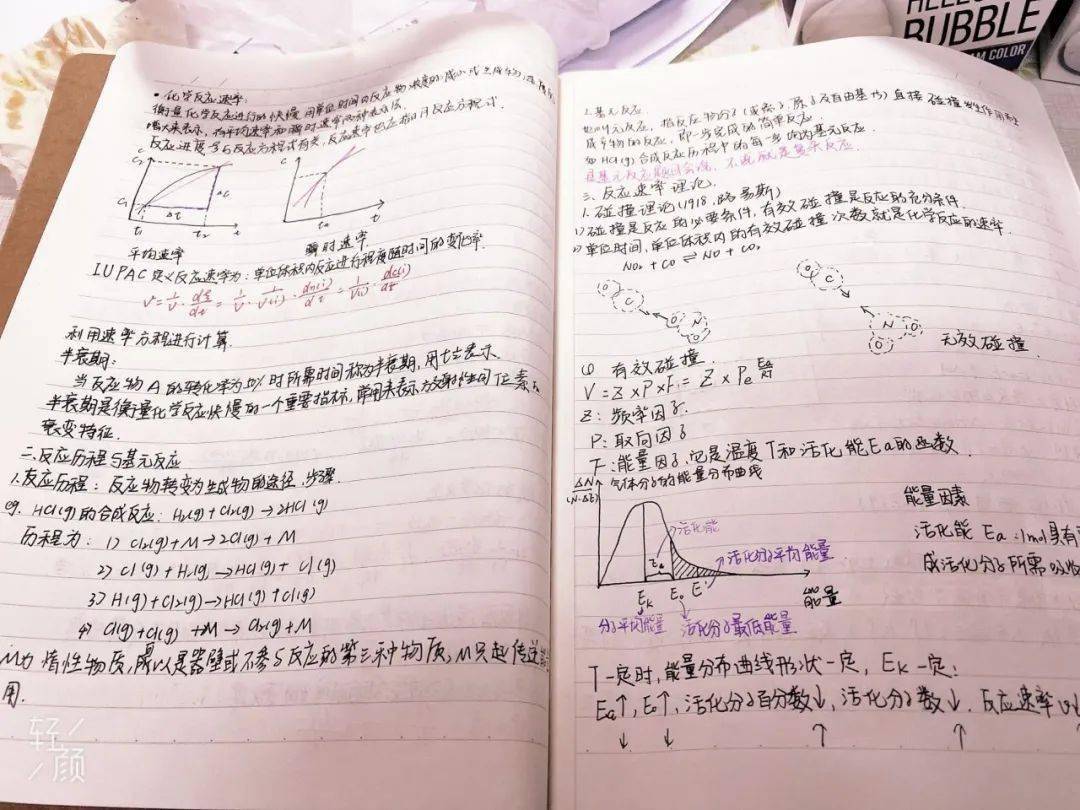 • 化学反应速率:
衡量化学反应进行的快慢 用单位时间内反应物浓度的减小或生成物浓度
增大来表示, 有平均速率和瞬时速率两种表示法.
反应进度与反应方程式有关, 反应速率也应指明反应方程式.
c
C₂
C₁
Δc
Δt
t₁ t₂ t
平均速率
c
t
瞬时速率
IUPAC定义反应速率为: 单位体积内反应进行程度随时间的变化率.
V = 1/V · dξ/dt = 1/V · 1/V(i) · dn(i)/dt = 1/V(i) · dc(i)/dt
利用速率方程进行计算
半衰期:
当反应物A的转化率为50%时所需时间称为半衰期, 用t½表示.
半衰期是衡量化学反应快慢的一个重要指标, 常用来表示放射性同位素的
衰变特征.
二.反应历程与基元反应
1.反应历程: 反应物转变为生成物的途径、步骤.
eg. HCl(g)的合成反应: H₂(g)+Cl₂(g)→2HCl(g)
历程为: 1) Cl₂(g)+M→2Cl(g)+M
2) Cl(g)+H₂(g)→HCl(g)+Cl(g)
3) H(g)+Cl₂(g)→HCl(g)+Cl(g)
4) Cl(g)+Cl(g)+M→Cl₂(g)+M
M为惰性物质, 可以是器壁或不参与反应的第三种物质, M只起传递
用.
2.基元反应
指反应物分子(或离子、原子及自由基等)直接碰撞发生作用
成产物的反应, 即一步完成的简单反应.
如HCl(g)合成反应历程中的每一步均为基元反应.
不然就是复杂反应.
三. 反应速率理论.
1. 碰撞理论(1918, 路易斯)
1) 碰撞是反应的必要条件, 有效碰撞是反应的充分条件.
2) 单位时间, 单位体积内的有效碰撞次数就是化学反应的速率.
NO₂ + CO ⇌ NO + CO₂
O C O N O
O C O N O O
有效碰撞
无效碰撞.
V = Z×P×F = Z×Pe Ea/RT
Z: 频率因子.
P: 取向因子
F: 能量因子, 它是温度T和活化能Ea的函数.
ΔN/(N·ΔE)
气体分子的能量分布曲线
活化能
活化分子平均能量
Ek E₀ E'
能量
分子平均能量 活化分子最低能量.
能量因素
活化能 Ea: 1mol具有
成活化分子所需吸收
T一定时, 能量分布曲线形状一定, Ek一定:
Ea↑, E₀↑, 活化分子百分数↓, 活化分子数↓, 反应速率V↓
↓ ↓ ↑ ↑
HELLO
BUBBLE
FOAM COLOR
轻
颜